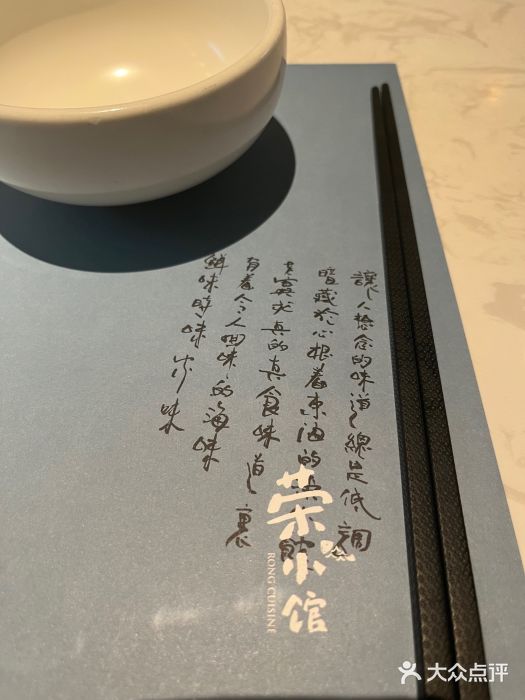 讓人想念的味道總是低調
暗藏於心根着東海的
求真的真食味道裏
有着令人回味的海味
鮮味時味家味
荣小馆
RONG CUISINE
大众点评